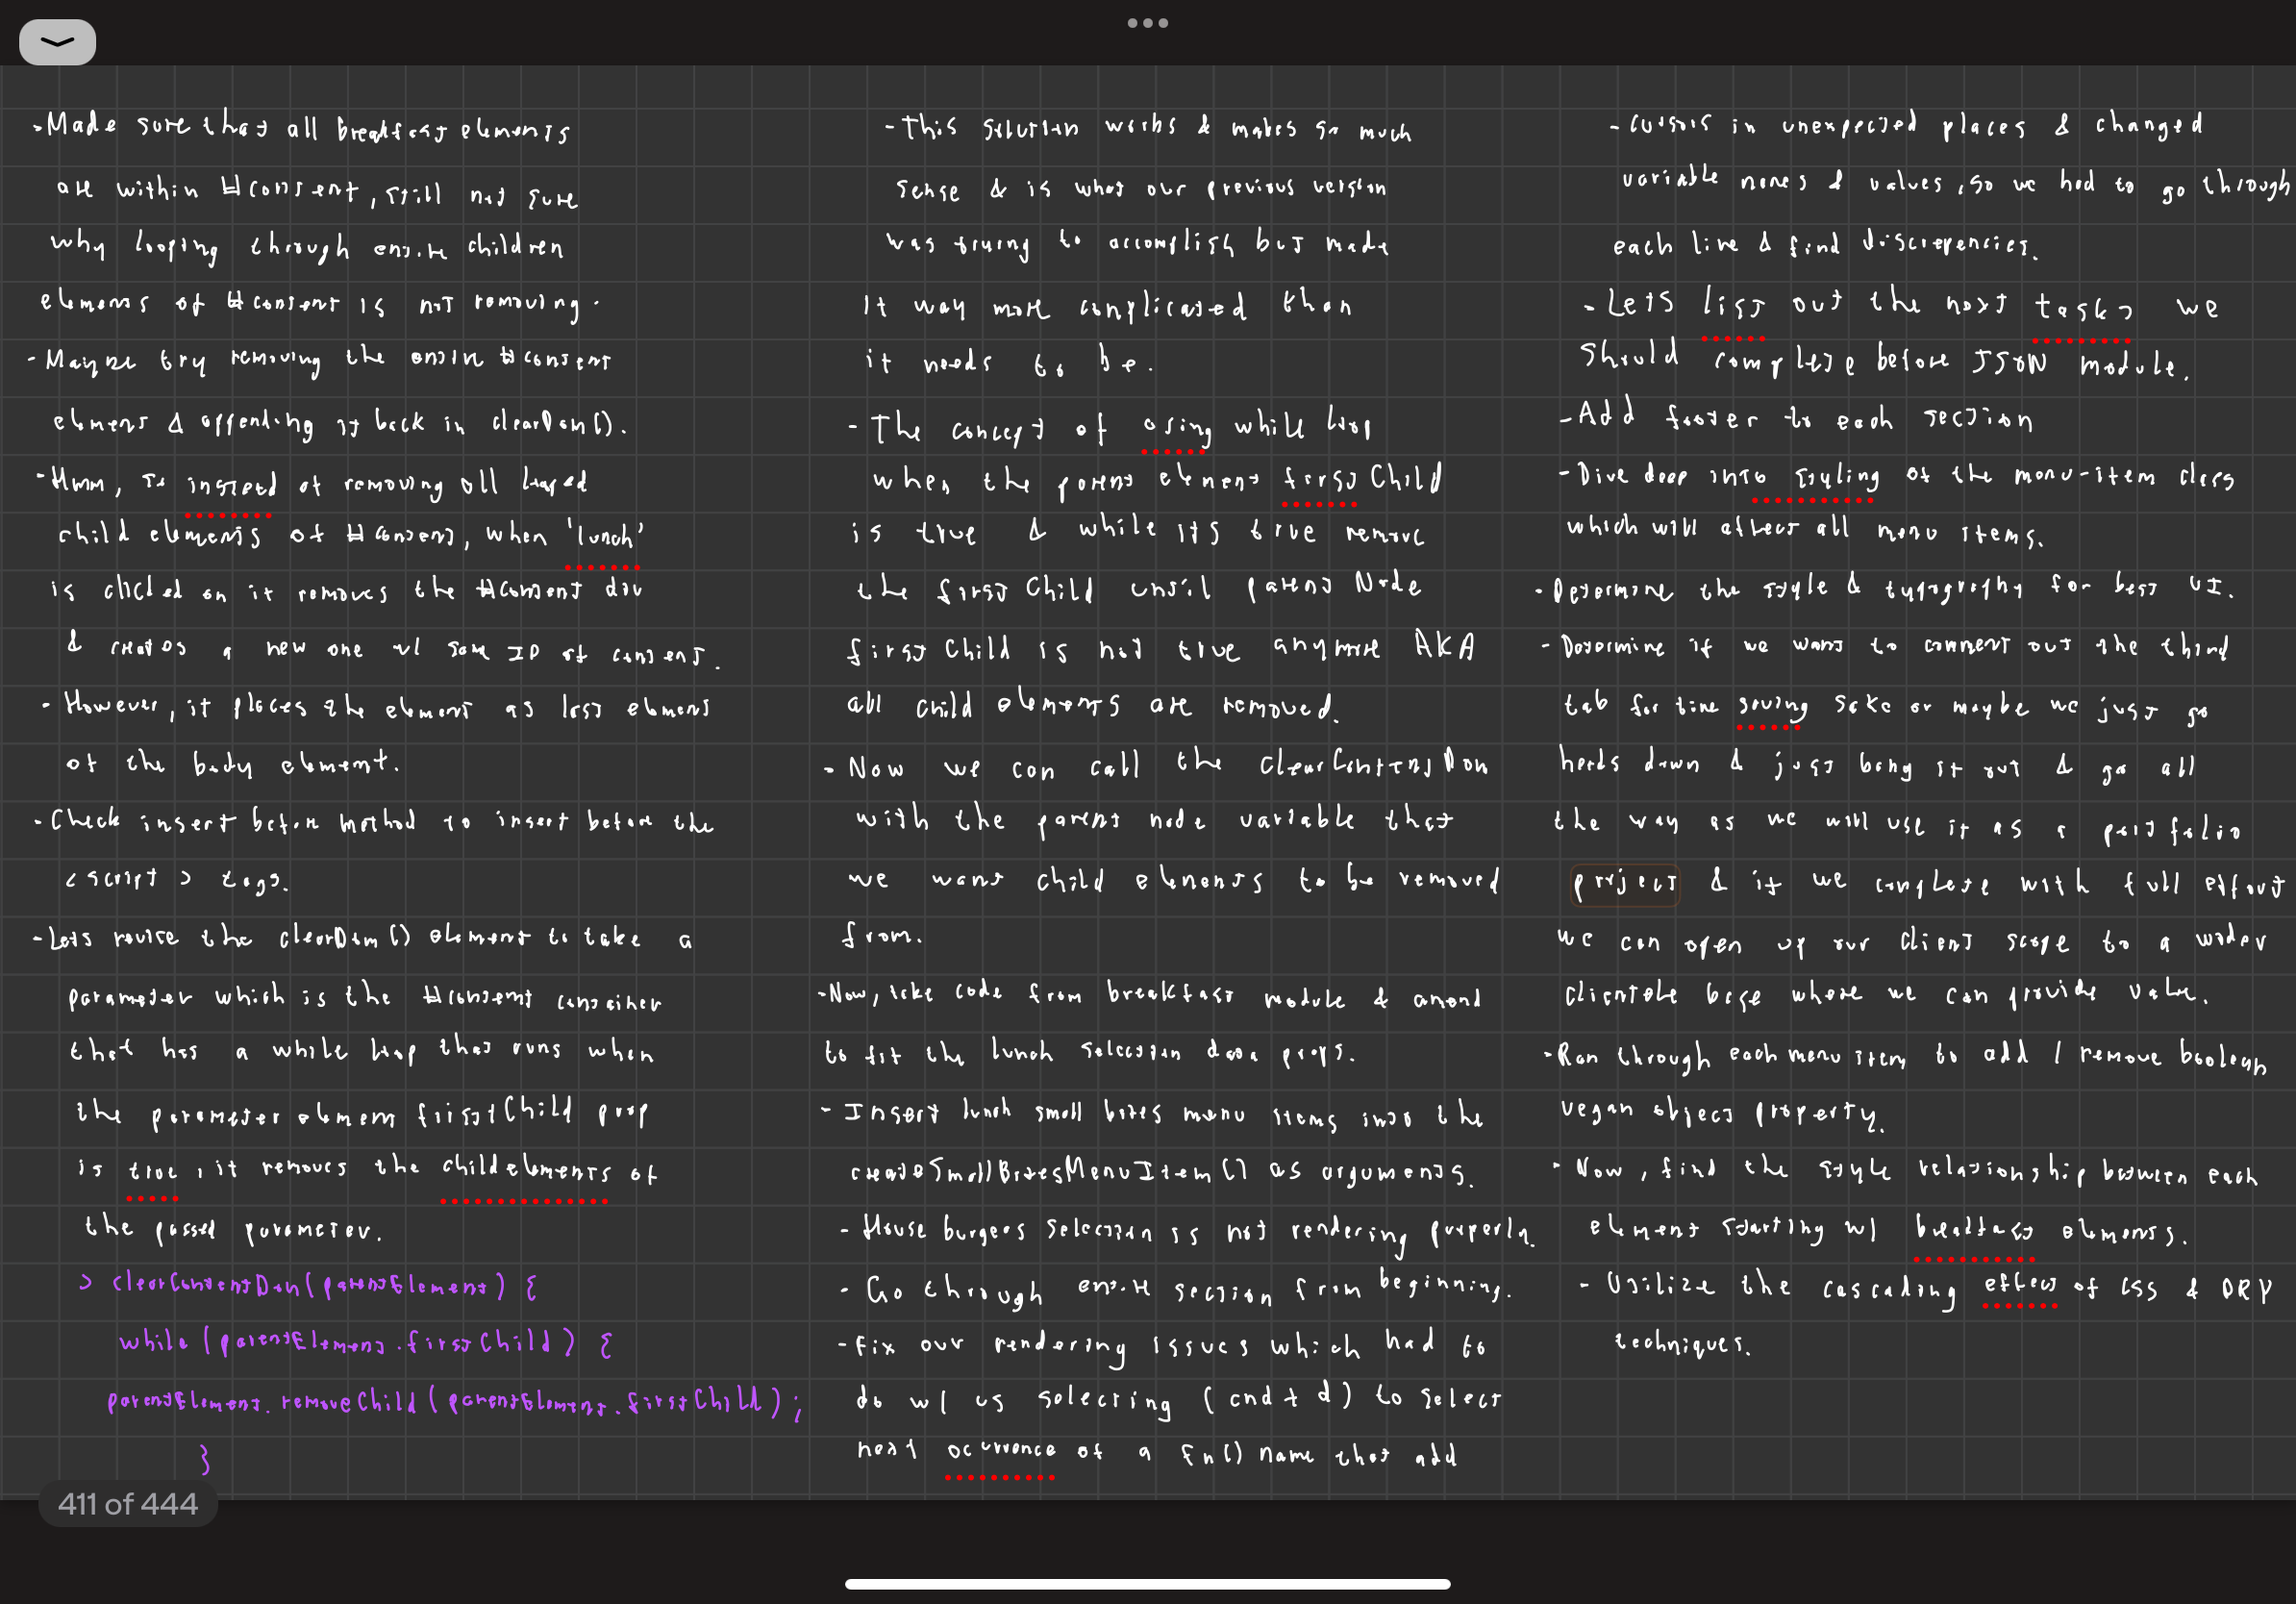 - Made sure that all breakfast elements
are within #content, still not sure
why looping through entire children
elements of #content is not removing.
- Maybe try removing the entire #content
element & appending it back in clearDom().
- Hmm, so instead of removing all looped
child elements of #content, when 'lunch'
is clicked on it removes the #content div
& creates a new one w/ same ID of content.
- However, it places the element as last element
of the body element.
- Check insert before method to insert before the
<script> tags.
- Lets revise the clearDom() element to take a
parameter which is the #content container
that has a while loop that runs when
the parameter element firstChild prop
is true, it removes the child elements of
the passed parameter.
> clearContentDom(parentElement) {
while (parentElement.firstChild) {
parentElement.removeChild(parentElement.firstChild);
}
- This solution works & makes so much
sense & is what our previous version
was trying to accomplish but made
it way more complicated than
it needs to be.
- The concept of using while loop
when the parent element firstChild
is true & while its true remove
the firstChild until parent Node
firstChild is not true anymore AKA
all child elements are removed.
- Now we can call the clearContentDom
with the parent node variable that
we want child elements to be removed
from.
- Now, take code from breakfast module & amend
to fit the lunch selection data props.
- Insert lunch small bites menu items into the
createSmallBitesMenuItem() as arguments.
- House burgers selection is not rendering properly.
- Go through entire section from beginning.
- Fix our rendering issues which had to
do w/ us selecting (cmd + d) to select
next ocurrence of a fn() name that add
- cursors in unexpected places & changed
variable names & values, so we had to go through
each line & find discrepencies.
- Lets list out the next tasks we
should complete before JSON module.
- Add footer to each section
- Dive deep into styling of the menu-item class
which will affect all menu items.
- Determine the style & typography for best UI.
- Determine if we want to comment out the third
tab for time saving sake or maybe we just go
heads down & just bang it out & go all
the way as we will use it as a portfolio
project & if we complete with full effort
we can open up our client scope to a wider
clientele base where we can provide value.
- Ran through each menu item to add / remove boolean
vegan object property.
- Now, find the style relationship between each
element starting w/ breakfast elements.
- Utilize the cascading effect of CSS & DRY
techniques.
411 of 444